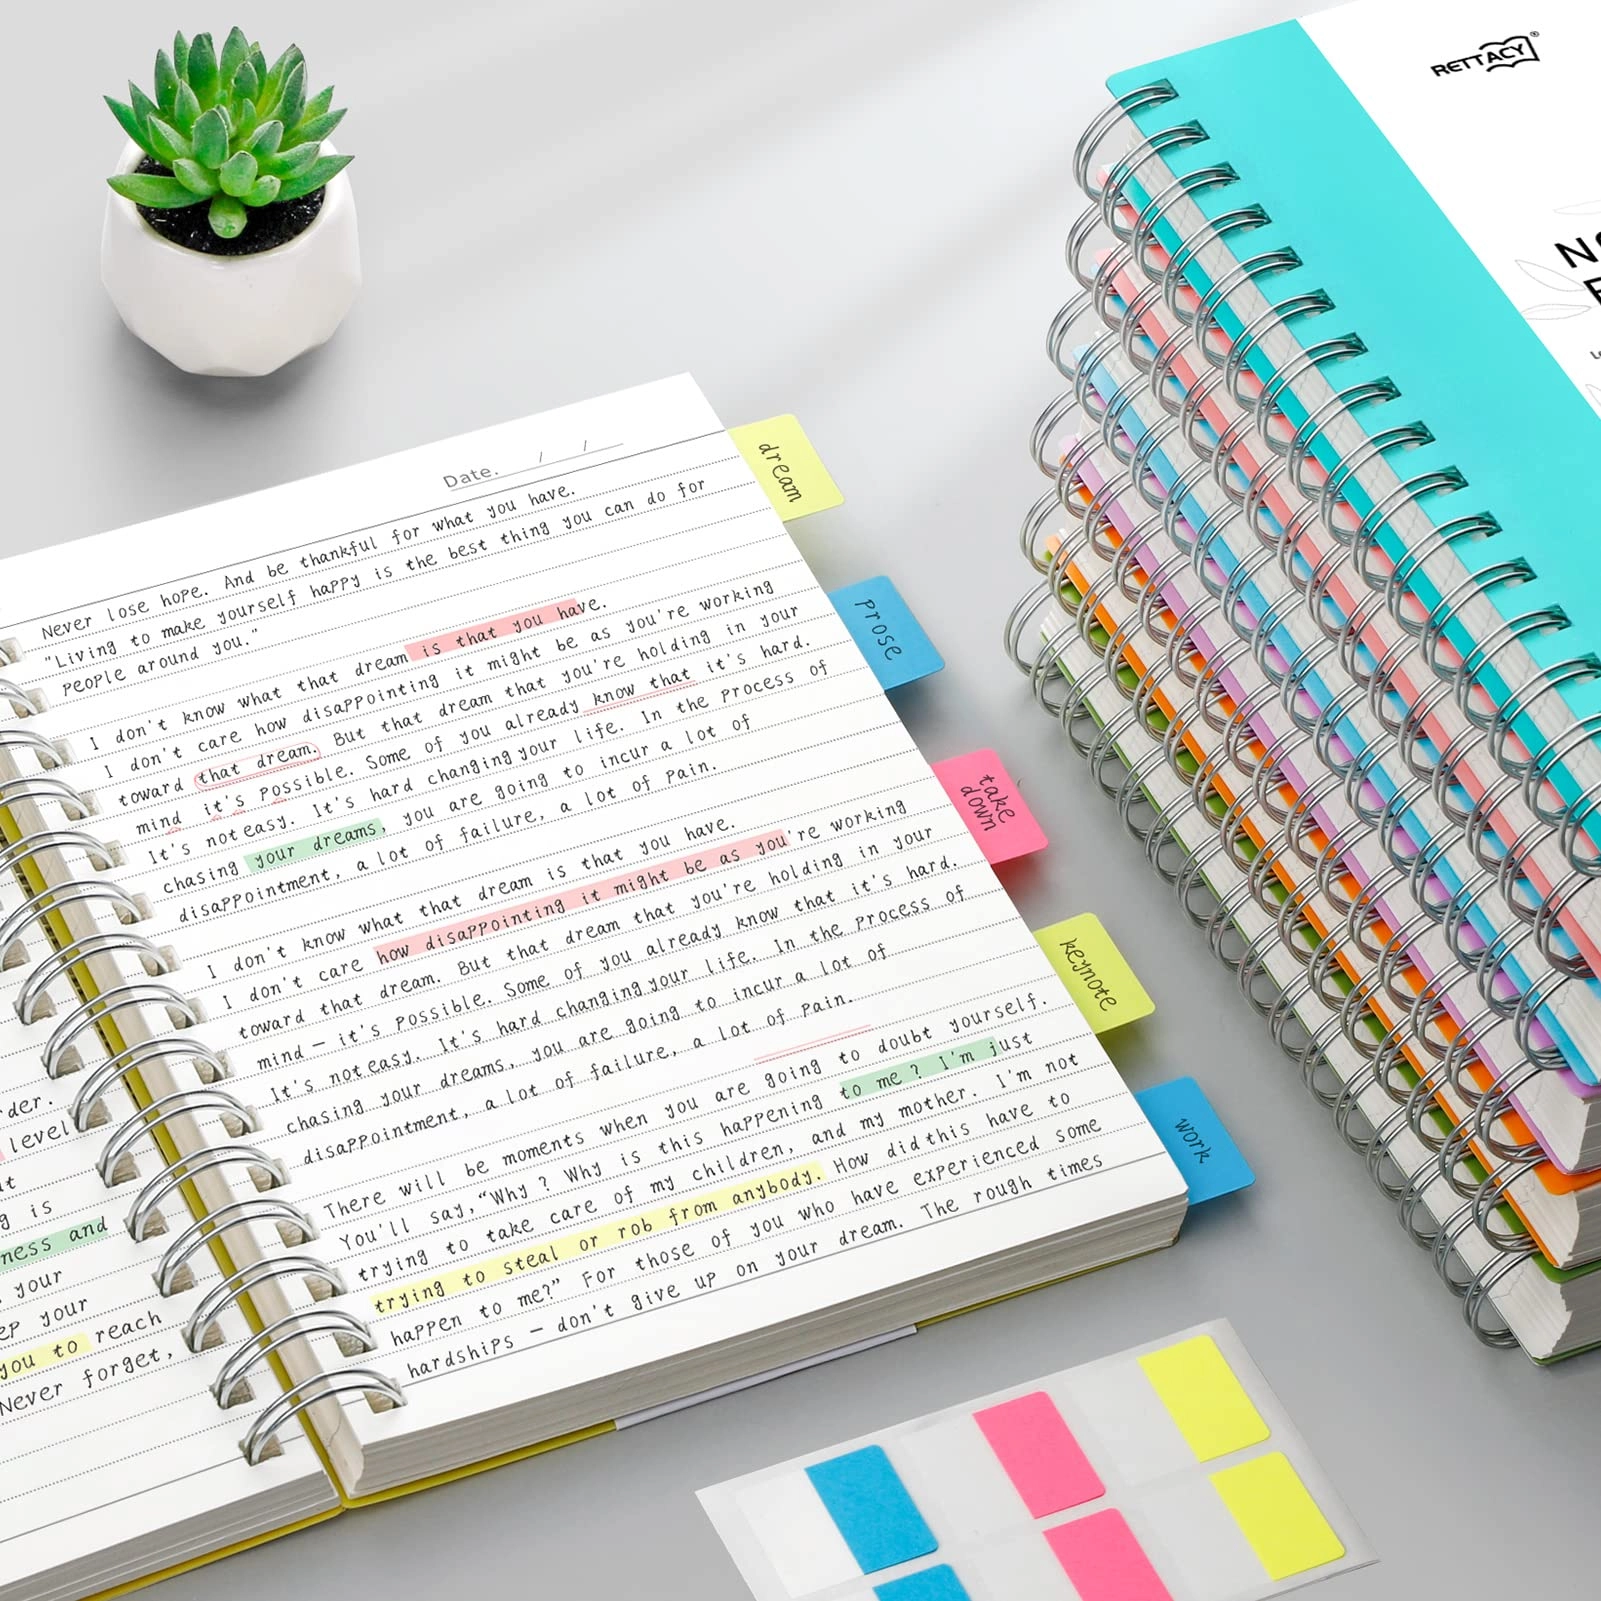 Date. / /
Never lose hope. And be thankful for what you have.
"Living to make yourself happy is the best thing you can do for
people around you."
I don't know what that dream is that you have.
I don't care how disappointing it might be as you're working
toward that dream. But that dream that you're holding in your
mind it's possible. Some of you already know that it's hard.
It's not easy. It's hard changing your life. In the process of
chasing your dreams, you are going to incur a lot of
disappointment, a lot of failure, a lot of pain.
I don't know what that dream is that you have.
I don't care how disappointing it might be as you're working
toward that dream. But that dream that you're holding in your
mind – it's possible. Some of you already know that it's hard.
It's not easy. It's hard changing your life. In the process of
chasing your dreams, you are going to incur a lot of
disappointment, a lot of failure, a lot of pain.
There will be moments when you are going to doubt yourself.
You'll say, "Why? Why is this happening to me? I'm just
trying to take care of my children, and my mother. I'm not
trying to steal or rob from anybody. How did this have to
happen to me?" For those of you who have experienced some
hardships – don't give up on your dream. The rough times
der.
level
g is
ness and
your
ep your
you to reach
Never forget,
dream
prose
take
down
keynote
work
RETTACY®